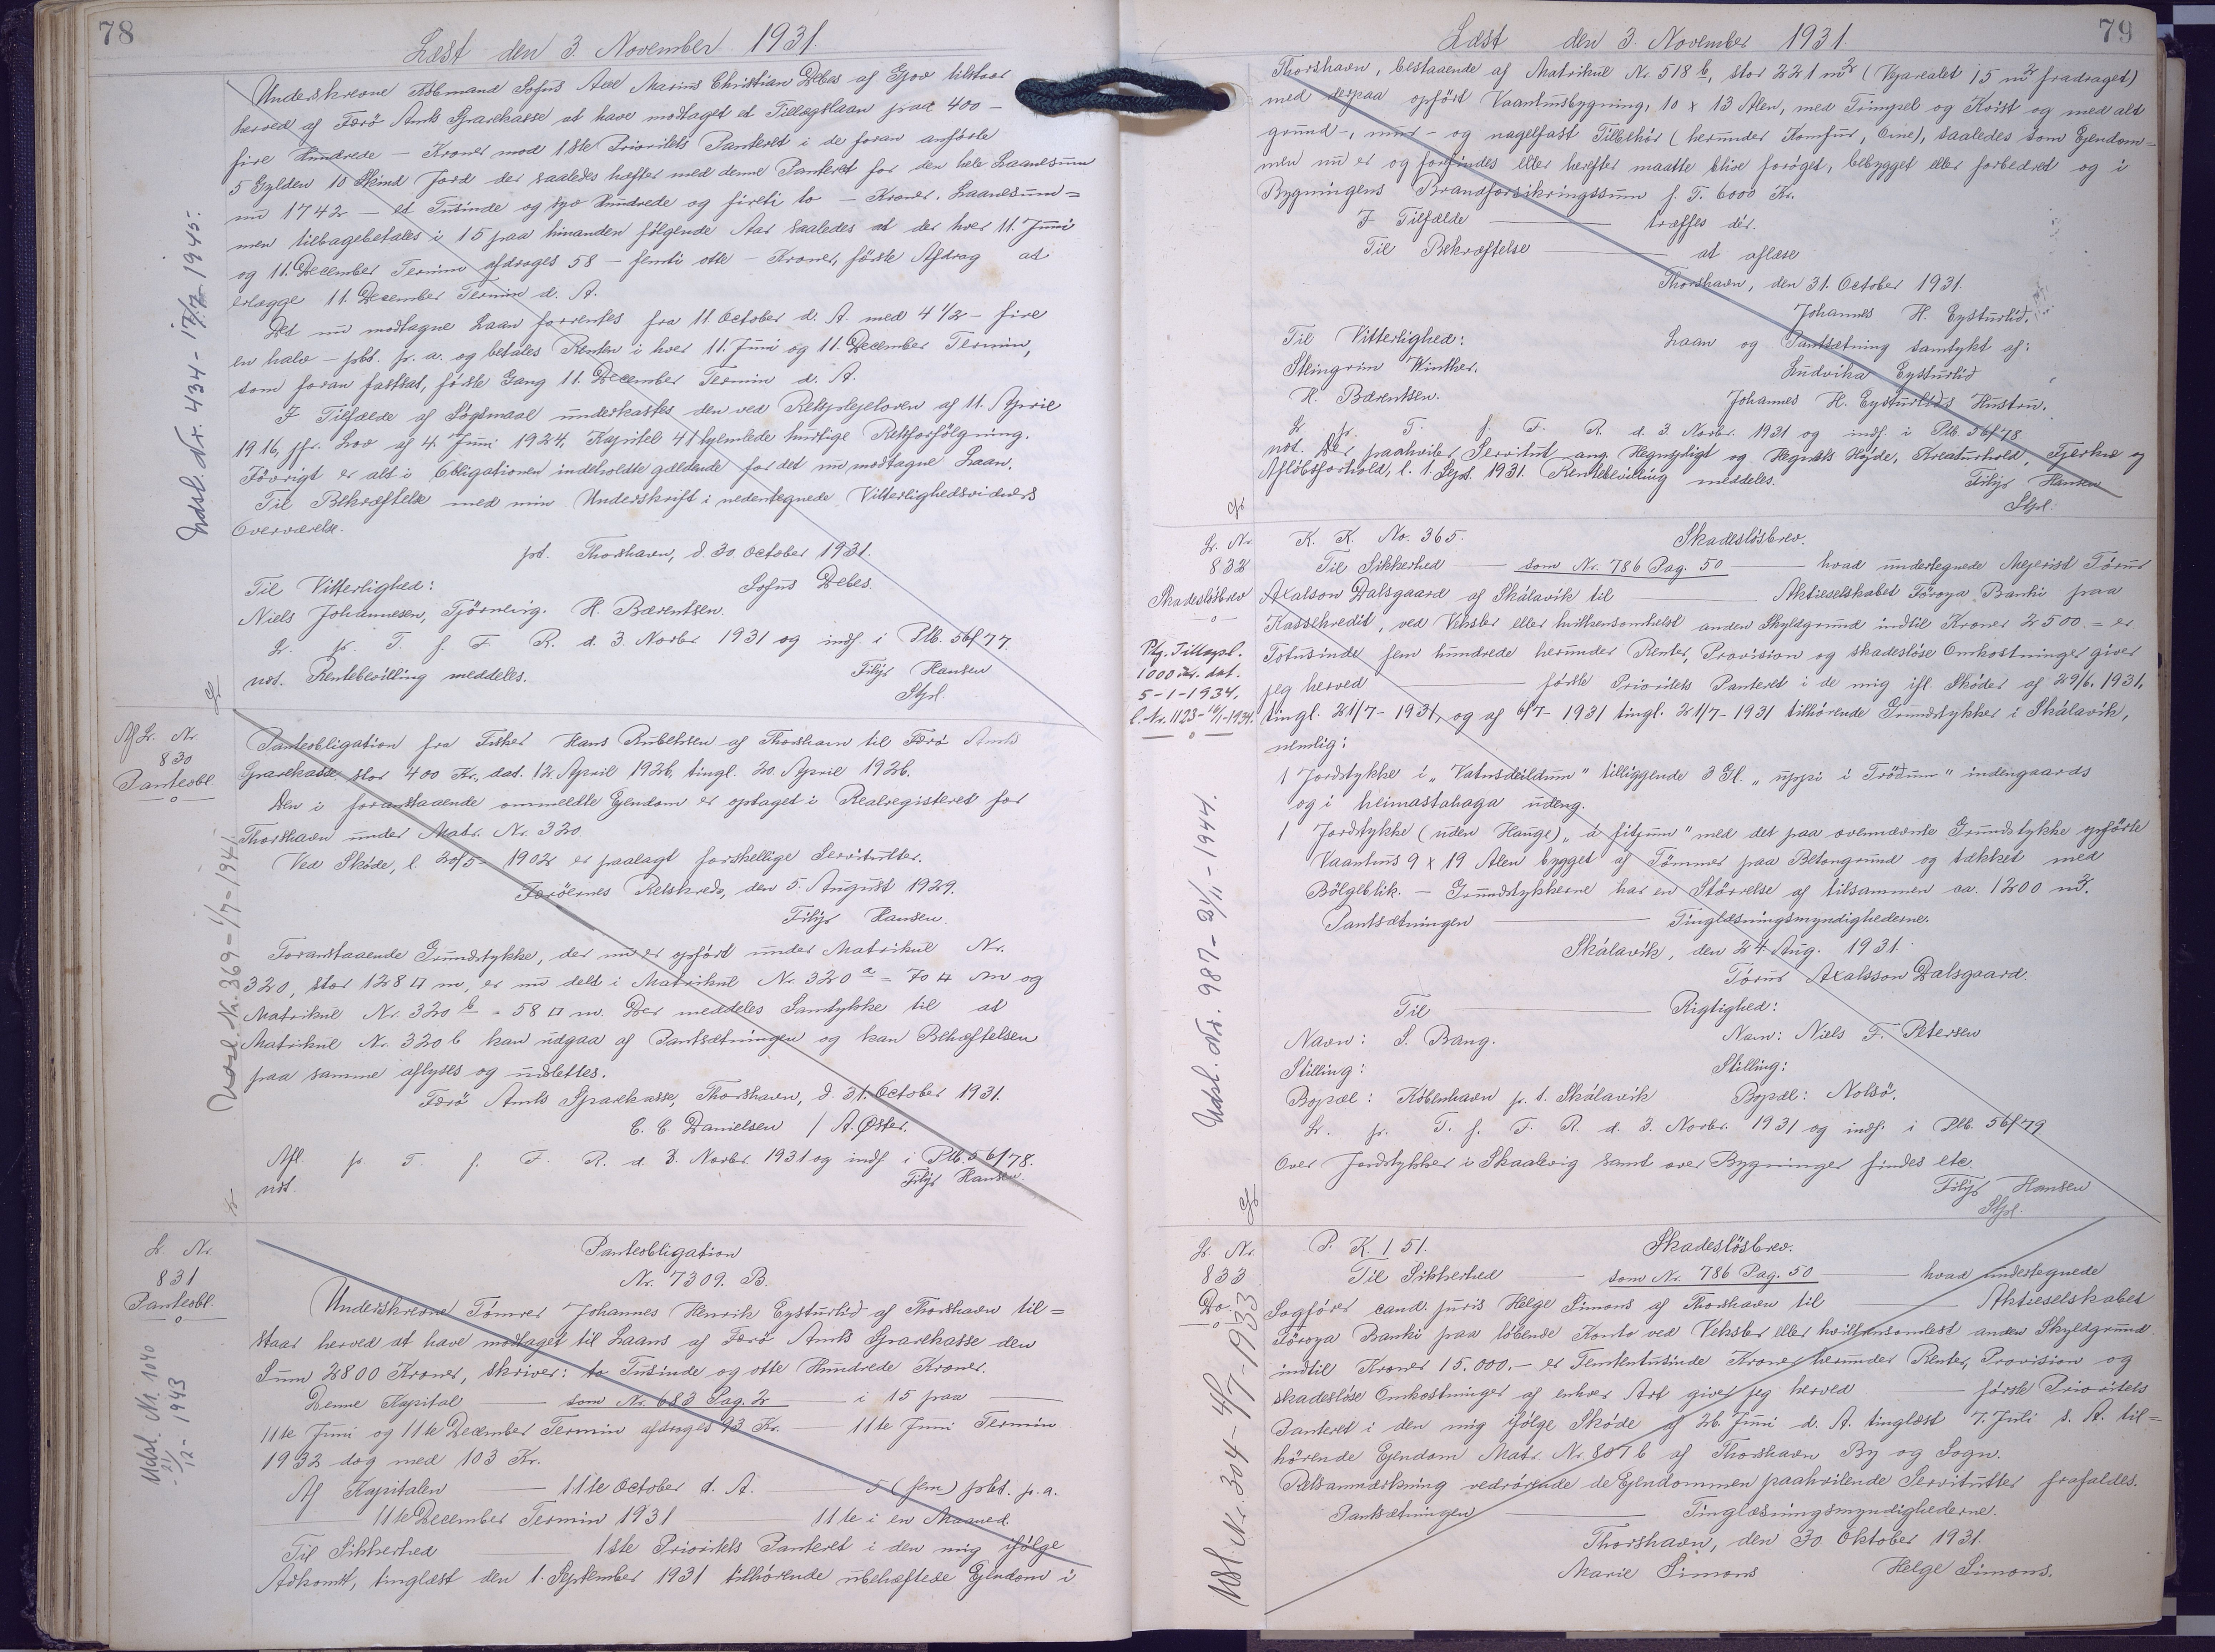 78
Læst den 3 November 1931.
Underskrevne Købmand Sofus Axel Marius Christian Debes af Gjov tilstaar
herved af Færö Amts Sparekasse at have modtaget et Tillægslaan paa 400 –
fire Hundrede – Kroner mod 1ste Prioritets Panteret i de foran anførte
5 Gylden 10 Skind Jord der saaledes hæfter med denne Panteret for den hele Laanesum
nu 1742 – et Tusinde og syv Hundrede og firti to – Kroner. Laanesum=
men tilbagebetales i 15 paa hinanden følgende Aar saaledes at der hver 11. Juni
og 11. December Termin afdrages 58 – femti otte – Kroner, første Afdrag at
erlægge 11. December Termin d. A.
Det nu modtagne Laan forrentes fra 11. October d. A. med 4 1/2 – fire
en halv – pCt. pr. a. og betales Renten i hver 11. Juni og 11. December Termin,
som foran fastsat, første Gang 11. December Termin d. A.
I Tilfælde af Søgsmaal underkastes den ved Retsplejeloven af 11. April
1916, jfr. Lov af 4 Juni 1924, Kapitel 41 hjemlede hurtige Retsforfølgning.
Iøvrigt er alt i Obligationen indeholdte gældende for det nu modtagne Laan.
Til Bekræftelse med min Underskrift i nedentegnede Vitterlighedsvidners
Overværelse.
pt. Thorshavn, d. 30. October 1931.
Til Vitterlighed: Sofus Debes.
Niels Johannesen, Tjörnevig. H. Bærentsen.
L. pr. T. f. F. R. d. 3. Novbr 1931 og indf. i Plb. 56/77.
not. Rentebevilling meddeles. Filip Hansen
Stpl.
Udsl. Nr. 434 – 17/7 – 1945.
Af L. Nr.
830
Panteobl.
Panteobligation fra Fisker Hans Rubeksen af Thorshavn til Færö Amts
Sparekasse stor 400 Kr., dat. 12. April 1926, tingl. 20. April 1926.
Den i foranstaaende ommeldte Ejendom er optaget i Realregisteret for
Thorshavn under Matr. Nr. 320.
Ved Skøde, l. 20/5 – 1902 er paalagt forskellige Servitutter.
Færöernes Retskreds, den 5. August 1929.
Filip Hansen.
Foranstaaende Grundstykke, der nu er opført under Matrikul Nr.
320, stor 128 □ m, er nu delt i Matrikul Nr. 320 a = 70 □ m og
Matrikul Nr. 320 b = 58 □ m. Der meddeles Samtykke til at
Matrikul Nr. 320 b kan udgaa af Pantsætningen og kan Behæftelsen
paa samme aflyses og udslettes.
Færö Amts Sparekasse, Thorshavn, d. 31. October 1931.
C. C. Danielsen / A. Øster.
Afl. pr. T. f. F. R. d. 3. Novbr. 1931 og indf. i Plb. 56/78.
not. Filip Hansen.
Udsl. Nr. 369 – 1/7 – 1941.
L. Nr.
831
Panteobl.
Udsl. Nr. 1040
21/12 – 1943
Panteobligation
Nr. 7309. B.
Underskrevne Tømrer Johannes Henrik Eysturlid af Thorshavn til=
staar herved at have modtaget til Laans af Færö Amts Sparekasse den
Sum 2800 Kroner, skriver: to Tusinde og otte Hundrede Kroner.
Denne Kapital — som Nr. 683 Pag. 2 — i 15 paa —
11te Juni og 11te December Termin afdrages 93 Kr. — 11te Juni Termin
1932 dog med 103 Kr.
Af Kapitalen — 11te October d. A. — 5 (fem) pCt. p. a.
— 11te December Termin 1931 — 11te i en Maaned
Til Sikkerhed — 1ste Prioritets Panteret i den mig ifølge
Adkomst, tinglæst den 1. September 1931 tilhørende ubehæftede Ejendom i
79
Læst den 3. November 1931.
Thorshavn, bestaaende af Matrikul Nr 518 b, stor 221 m2 (Vejarealet 15 m2 fradraget)
med derpaa opført Vaanhusbygning, 10 x 13 Alen, med Trimpel og Kvist og med alt
grund-, mur- og nagelfast Tilbehör (herunder Komfur, Ovne), saaledes som Ejendom=
men nu er og forefindes eller herefter maatte blive forøget, bebygget eller forbedret og i
Bygningens Brandforsikringssum f. T. 6000 Kr.
I Tilfælde — træffes dér.
Til Bekræftelse — at aflæse
Thorshavn, den 31. October 1931.
Johannes H. Eysturlid.
Til Vitterlighed: Laan og Pantsætning samtykt af:
Steingrim Winther. Ludvika Eysturlid
H. Bærentsen. Johannes H. Eysturlids Hustru.
L. pr. T. f. F. R. d. 3. Novbr. 1931 og indf. i Plb. 56/78
not. Der paahviler Servitut ang. Hegnspligt og Hegnets Højde, Kreaturhold, Fjerkræ og
Afløbsforhold, l. 1. Sept. 1931. Rentebevilling meddeles. Filip Hansen
Stpl.
L. Nr.
832
Skadeslösbrev
Ptg. Tillægsl.
1000 Kr. dat.
5-1-1934.
l. Nr. 1123 – 16/1 – 1934.
K. K. No. 365. Skadeslösbrev.
Til Sikkerhed — som Nr. 786 Pag. 50 — hvad undertegnede Mejerist Tórur
Axalson Dalsgaard af Skálavík til — Aktieselskabet Föroya Banki paa
Kassekredit, ved Veksler eller hvilkensomhelst anden Skyldgrund indtil Kroner 2500 = er
Totusinde fem hundrede herunder Renter, Provision og skadesløse Omkostninger giver
jeg herved — første Prioritets Panteret i de mig ifl. Skøder af 29/6. 1931,
tingl. 21/7 – 1931, og af 6/7 – 1931 tingl. 21/7 – 1931 tilhørende Grundstykker i Skálavík,
nemlig:
1 Jordstykke i „Vatnsdeildum" tilliggende 3 Gl. „uppi i Tröðum" indengaards
og i heimastahaga udeng.
1 Jordstykke (uden Hauge) „á fitjum" med det paa ovennævnte Grundstykke opførte
Vaanhus 9 x 19 Alen bygget af Tømmer paa Betongrund og tækket med
Bölgeblik. – Grundstykkerne har en Størrelse af tilsammen ca. 1200 m2.
Pantsætningen — Tinglæsningsmyndighederne.
Skálavík, den 24 Aug. 1931.
Tórur Axalsson Dalsgaard.
Til — Rigtighed:
Navn: S. Bang. Navn: Niels F. Petersen
Stilling: Stilling:
Bopæl: København p. t. Skálavík Bopæl: Nolsö.
L. pr. T. f. F. R. d. 3. Novbr. 1931 og indf. i Plb. 56/79
Over Jordstykker i Skaalevig samt over Bygninger findes etc.
Filip Hansen
Stpl.
Udsl. Nr. 987 – 3/11 – 1944.
L. Nr.
833
Do.
P. K. 151. Skadeslösbrev.
Til Sikkerhed — som Nr. 786 Pag. 50 — hvad undertegnede
Sagfører cand. juris Helge Simons af Thorshavn til — Aktieselskabet
Föroya Banki paa löbende Konto ved Veksler eller hvilkensomhelst anden Skyldgrund
indtil Kroner 15.000. – er Femtentusinde Kroner herunder Renter, Provision og
skadesløse Omkostninger af enhver Art giver jeg herved — første Prioritets
Panteret i den mig ifølge Skøde af 26. Juni d. A. tinglæst 7. Juli s. A. til=
hørende Ejendom Matr. Nr. 807 b af Thorshavn By og Sogn.
Retsanmærkning vedrørende de Ejendommen paahvilende Servitutter frafaldes.
Pantsætningen — Tinglæsningsmyndighederne.
Thorshavn, den 30. Oktober 1931.
Marie Simons Helge Simons.
Udsl. Nr. 304 – 4/7 – 1933